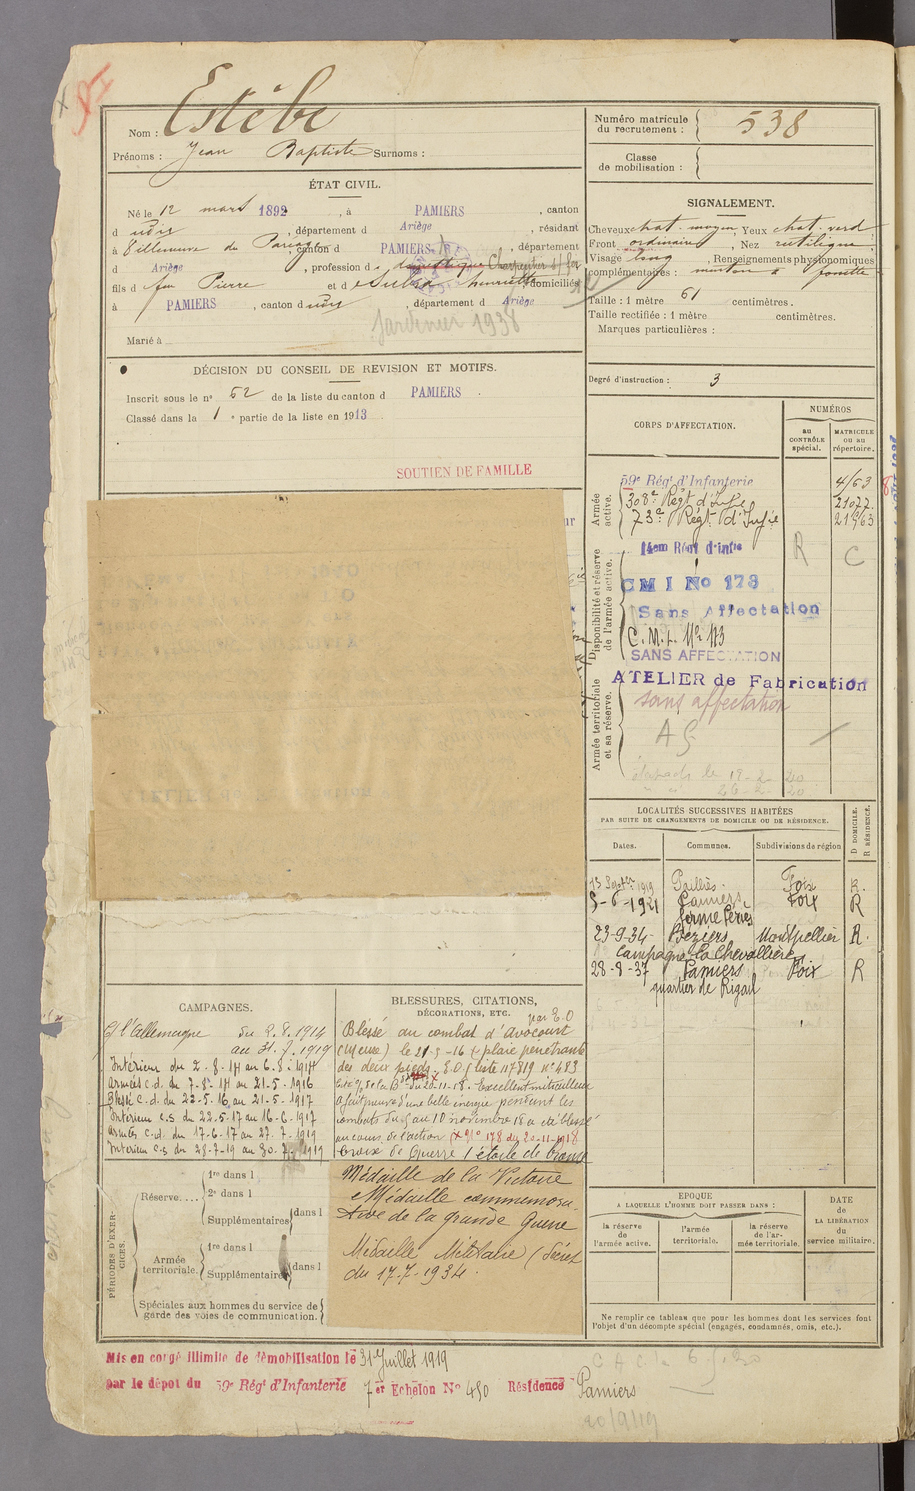 Nom : Estèbe
Prénoms : Jean Baptiste Surnoms :
ÉTAT CIVIL.
Né le 12 mars 1892, à PAMIERS, canton
d udit, département d Ariège, résidant
à Villeneuve du Paréage, canton d PAMIERS, département
d Ariège, profession de domestique Charpentier s/ fer
fils de feu Pierre et de Henriette domiciliés
à PAMIERS, canton dudit, département d Ariège
Jardinier 1938
Marié à
DÉCISION DU CONSEIL DE REVISION ET MOTIFS.
Inscrit sous le n° 52 de la liste du canton d PAMIERS.
Classé dans la 1e partie de la liste en 1913
SOUTIEN DE FAMILLE
CAMPAGNES.
C/ l'Allemagne du 2.8.1914
au 31.7.1919
Intérieur du 2-8-14 au 6-8-1914
Armées c.d. du 7-8-14 au 21-5-1916
Blessé c.d. du 22-5-16 au 21-5-1917
Intérieur c.s du 22-5-17 au 16-6-1917
Armées c.d. du 17-6-17 au 27-7-1919
Intérieur c.s du 28-7-19 au 30-7-1919
BLESSURES, CITATIONS,
DÉCORATIONS, ETC.
Blessé au combat d'Avocourt
(Meuse) le 21-5-16 plaie pénétrante
des deux pieds. E.O. liste 117819 n° 483
du 20-11-18. Excellent mitrailleur
a fait preuve d'une belle énergie pendant les
combats du 5 au 10 novembre 18 a été blessé
au cours de l'action (n° 178 du 20-11-1918
Croix de Guerre 1 étoile de bronze
Médaille de la Victoire
Médaille commémora-
tive de la grande Guerre
Médaille Militaire (Décret
du 17-7-1934.
PÉRIODES D'EXERCICES.
Réserve....
1re dans l
2e dans l
Supplémentaires dans l
Armée
territoriale.
1re dans l
Supplémentaires dans l
Spéciales aux hommes du service de
garde des voies de communication.
Mis en congé illimité de démobilisation le 31 Juillet 1919
par le dépôt du 59e Régt d'Infanterie 7er Echelon No 450 Résidence Pamiers
20/9/19
Numéro matricule
du recrutement : 538
Classe
de mobilisation :
SIGNALEMENT.
Cheveux chat. moyen, Yeux chat. verd
Front ordinaire, Nez rectiligne,
Visage long, Renseignements physionomiques
complémentaires : menton à fossette
Taille : 1 mètre 61 centimètres.
Taille rectifiée : 1 mètre centimètres.
Marques particulières :
Degré d'instruction : 3
CORPS D'AFFECTATION.
NUMÉROS
AU CONTRÔLE spécial.
MATRICULE OU AU répertoire.
Armée active.
59e Régt d'Infanterie 4/63
308e Régt d'Infie 21077
73e Régt d'Infie 21963
Disponibilité et réserve de l'armée active.
14em Régt d'Infie R C
CMI No 173
Sans Affectation
C.M.I. No 173
SANS AFFECTATION
Armée territoriale et sa réserve.
ATELIER de Fabrication
sans affectation
LOCALITÉS SUCCESSIVES HABITÉES
PAR SUITE DE CHANGEMENTS DE DOMICILE OU DE RÉSIDENCE.
Dates. Communes. Subdivisions de région D DOMICILE. R RÉSIDENCE.
13 Septbre 1919 Pailhès. Foix R.
5-6-1921 Pamiers Foix R
23-9-34 Béziers Montpellier R.
Campagne La Chevallière
28-8-37 Pamiers Foix R
quartier de Rigail
EPOQUE
A LAQUELLE L'HOMME DOIT PASSER DANS :
la réserve de l'armée active.
l'armée territoriale.
la réserve de l'armée territoriale.
DATE
DE
LA LIBÉRATION
du
service militaire.
Ne remplir ce tableau que pour les hommes dont les services font
l'objet d'un décompte spécial (engagés, condamnés, omis, etc.).